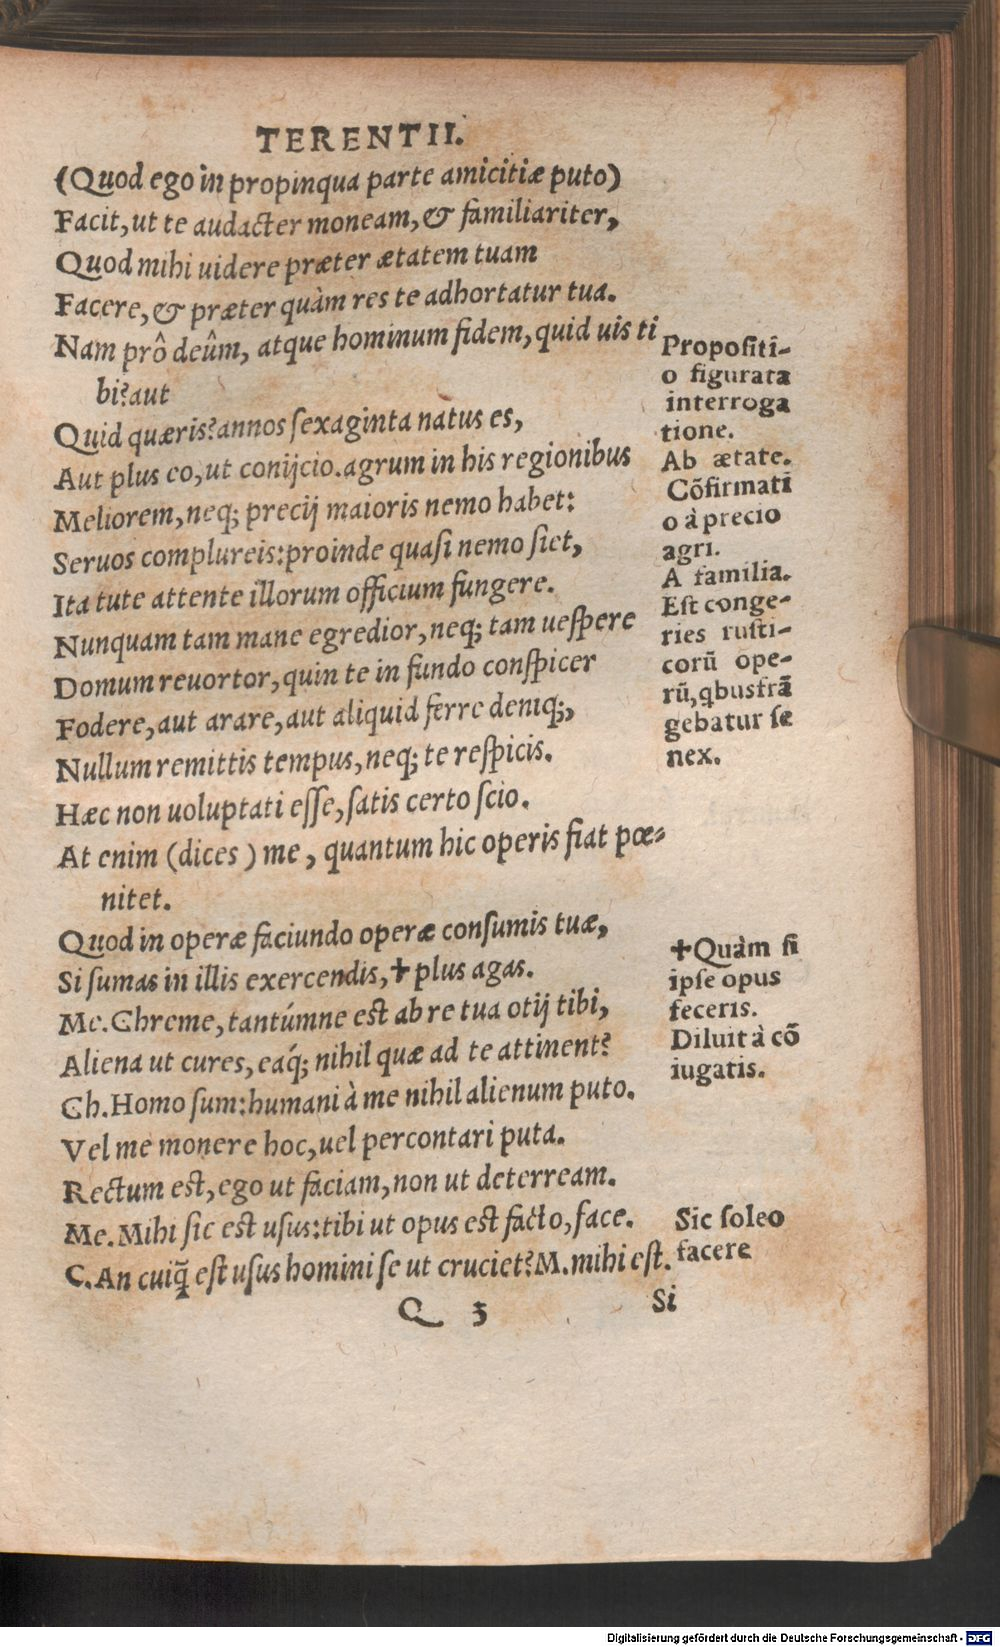 TERENTII.
(Quod ego in propinqua parte amicitiæ puto)
Facit, ut te audacter moneam, & familiariter,
Quod mihi uidere præter ætatem tuam
Facere, & præter quàm res te adhortatur tua.
Nam prô deûm, atque hominum fidem, quid uis ti
bi? aut
Quid quæris? annos ſexaginta natus es,
Aut plus eo, ut conijcio. agrum in his regionibus
Meliorem, neq; precij maioris nemo habet:
Seruos complureis: proinde quaſi nemo ſiet,
Ita tute attente illorum officium fungere.
Nunquam tam mane egredior, neq; tam ueſpere
Domum reuortor, quin te in fundo conſpicer
Fodere, aut arare, aut aliquid ferre deniq;,
Nullum remittis tempus, neq; te reſpicis.
Hæc non uoluptati eſſe, ſatis certo ſcio.
At enim (dices) me, quantum hic operis fiat pœ-
nitet.
Quod in operæ faciundo operæ conſumis tuæ,
Si ſumas in illis exercendis, ✝ plus agas.
Me. Chreme, tantúmne est ab re tua otij tibi,
Aliena ut cures, eáq; nihil quæ ad te attinent?
Ch. Homo ſum: humani à me nihil alienum puto.
Vel me monere hoc, uel percontari puta.
Rectum est, ego ut faciam, non ut deterream.
Me. Mihi ſic est uſus: tibi ut opus est facto, face.
C. An cuiq̃ eſt uſus homini ſe ut cruciet? M. mihi eſt.
Q 3
Si
Propoſiti-
o figurata
interroga
tione.
Ab ætate.
Cõfirmati
o à precio
agri.
A familia.
Eſt conge-
ries ruſti-
corũ ope-
rũ, qbus frã
gebatur ſe
nex.
✝ Quàm ſi
ipſe opus
feceris.
Diluit à cõ
iugatis.
Sic ſoleo
facere
Digitalisierung gefördert durch die Deutsche Forschungsgemeinschaft - DFG